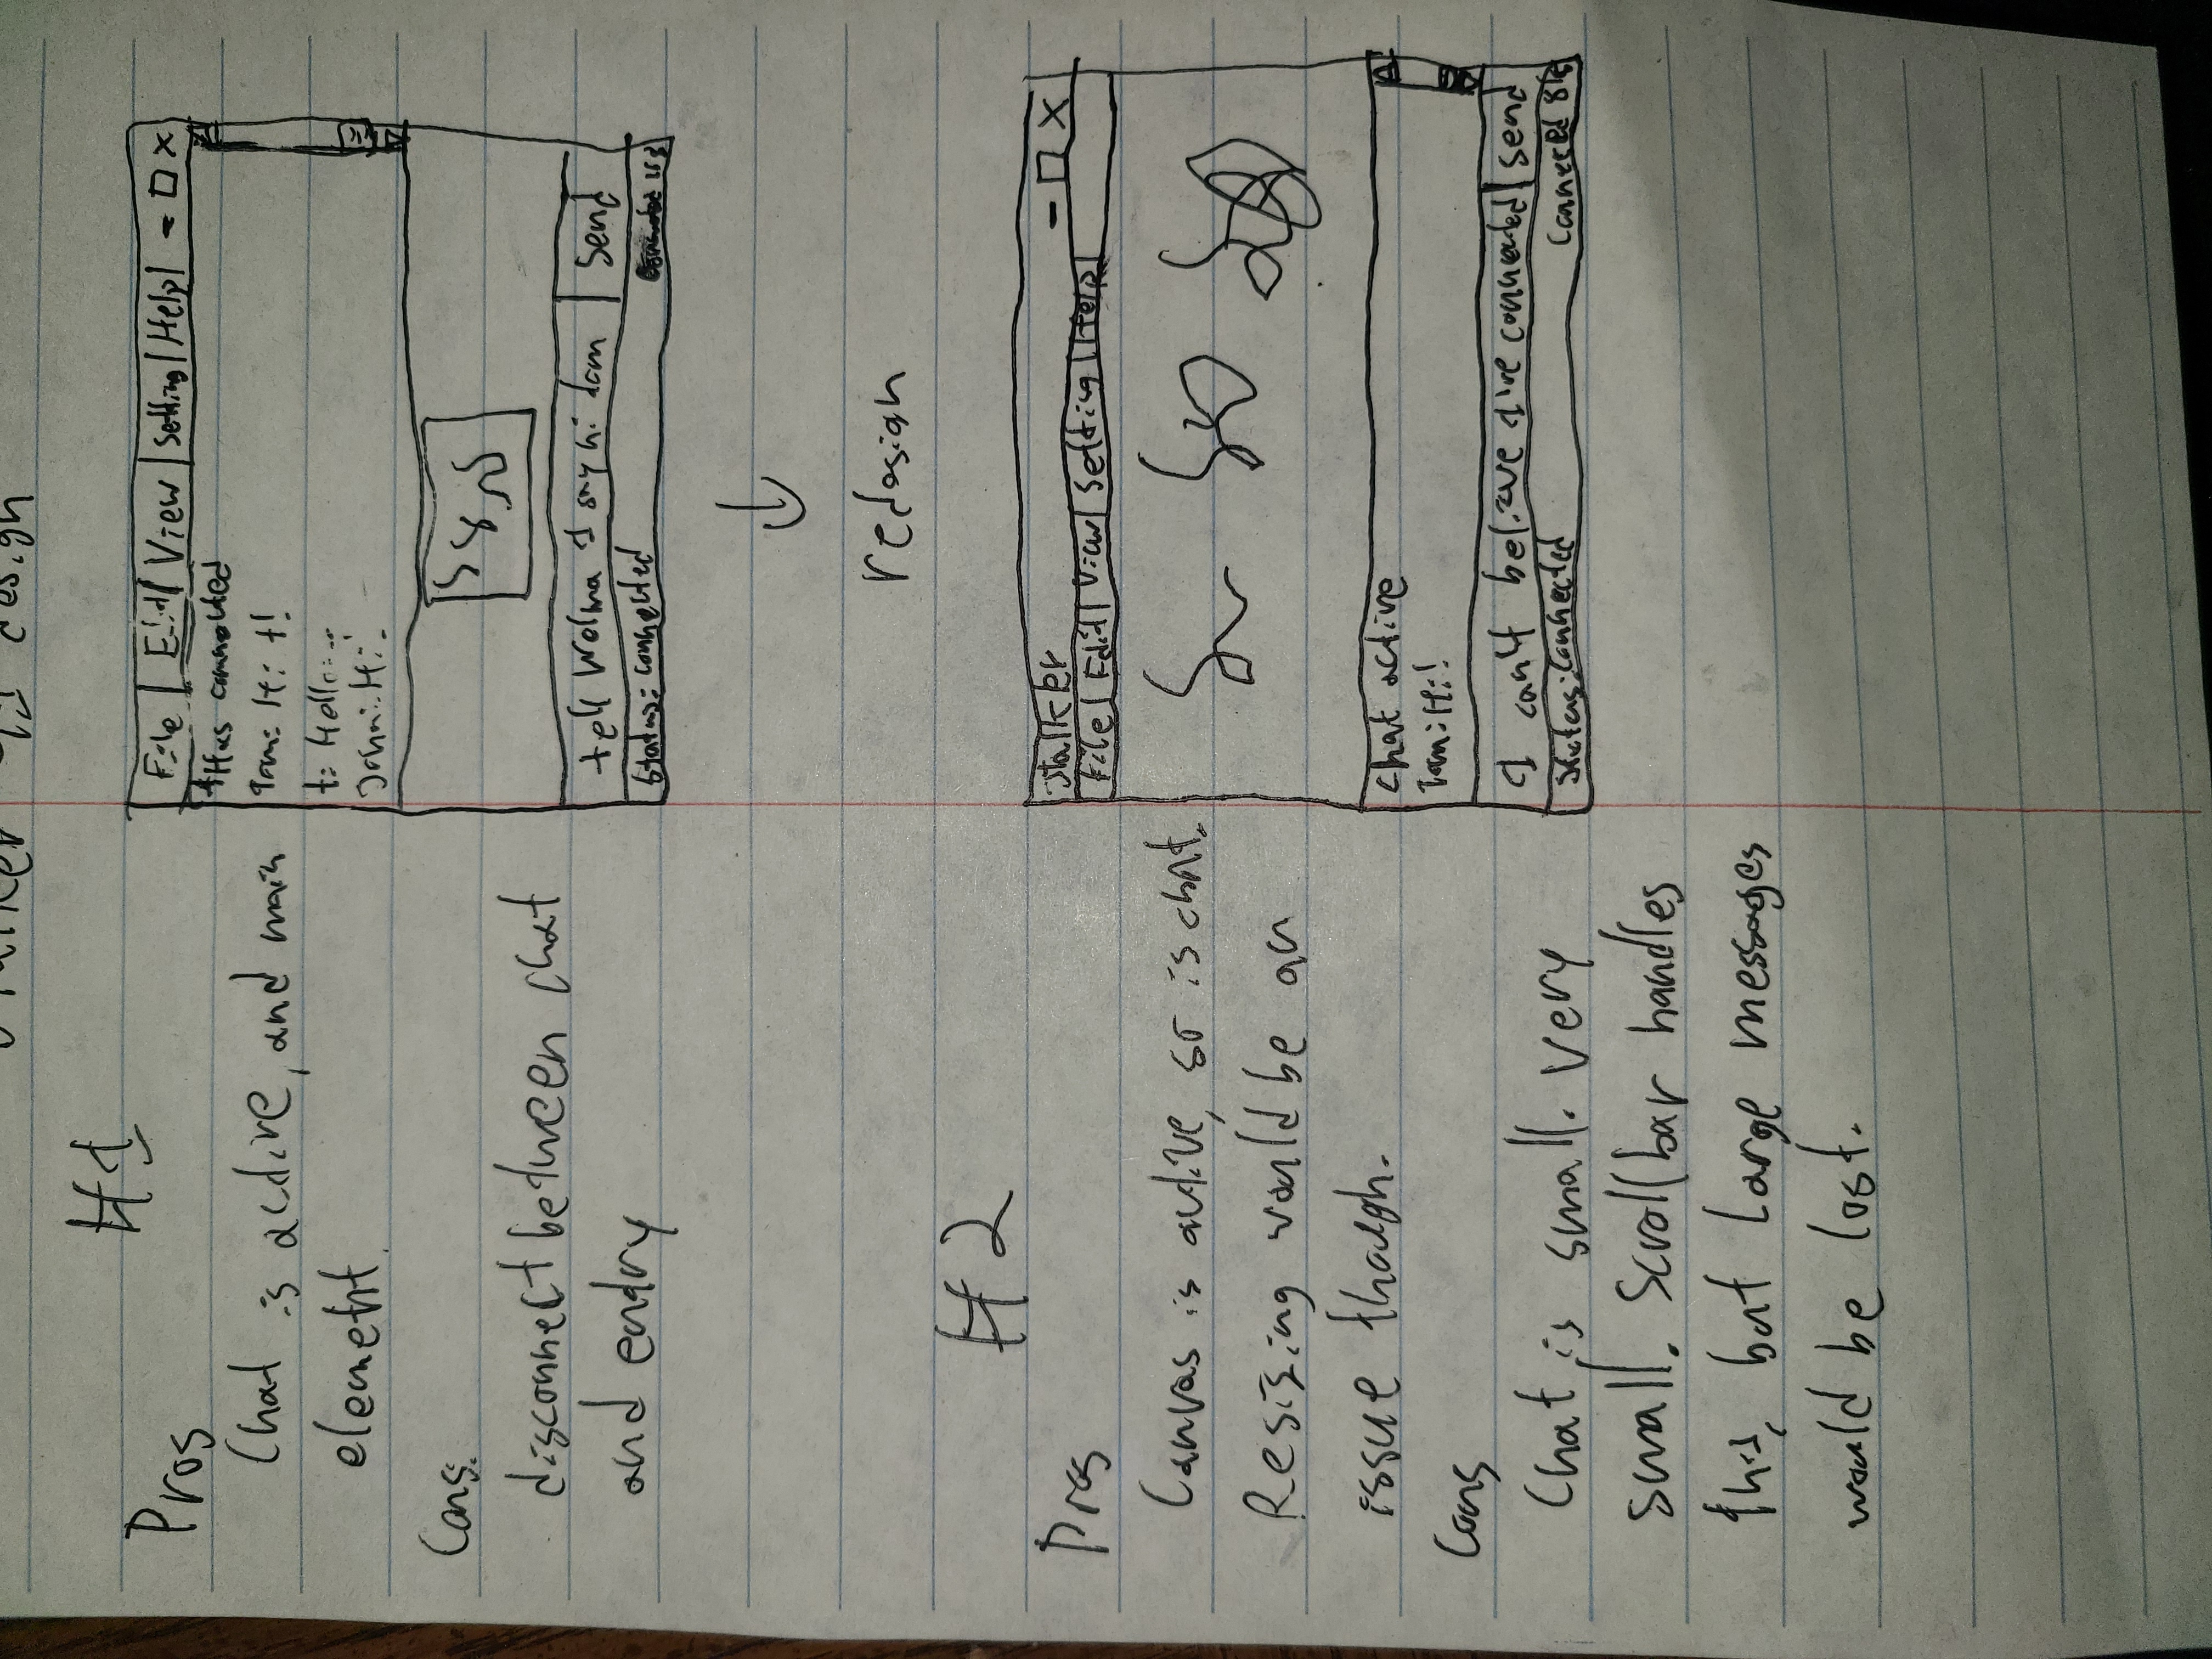 design
#1
Pros
Chat is active, and main
element.
Cons:
disconnect between chat
and entry
File | Edit | View | Setting | Help | - □ X
Has connected
Tom: Hi t!
t: Hello
John: Hi!
tell Welma I say hi tom | Send
Status: connected
↓
redesign
#2
Pros
Canvas is active, so is chat.
Resizing would be an
issue though.
Cons
Chat is small. Very
small. Scrollbar handles
this, but large messages
would be lost.
Stalker - □ X
File | Edit | View | Setting | Help
Chat active
Tom: Hi!
I can't believe I've connected | Send
Status: connected